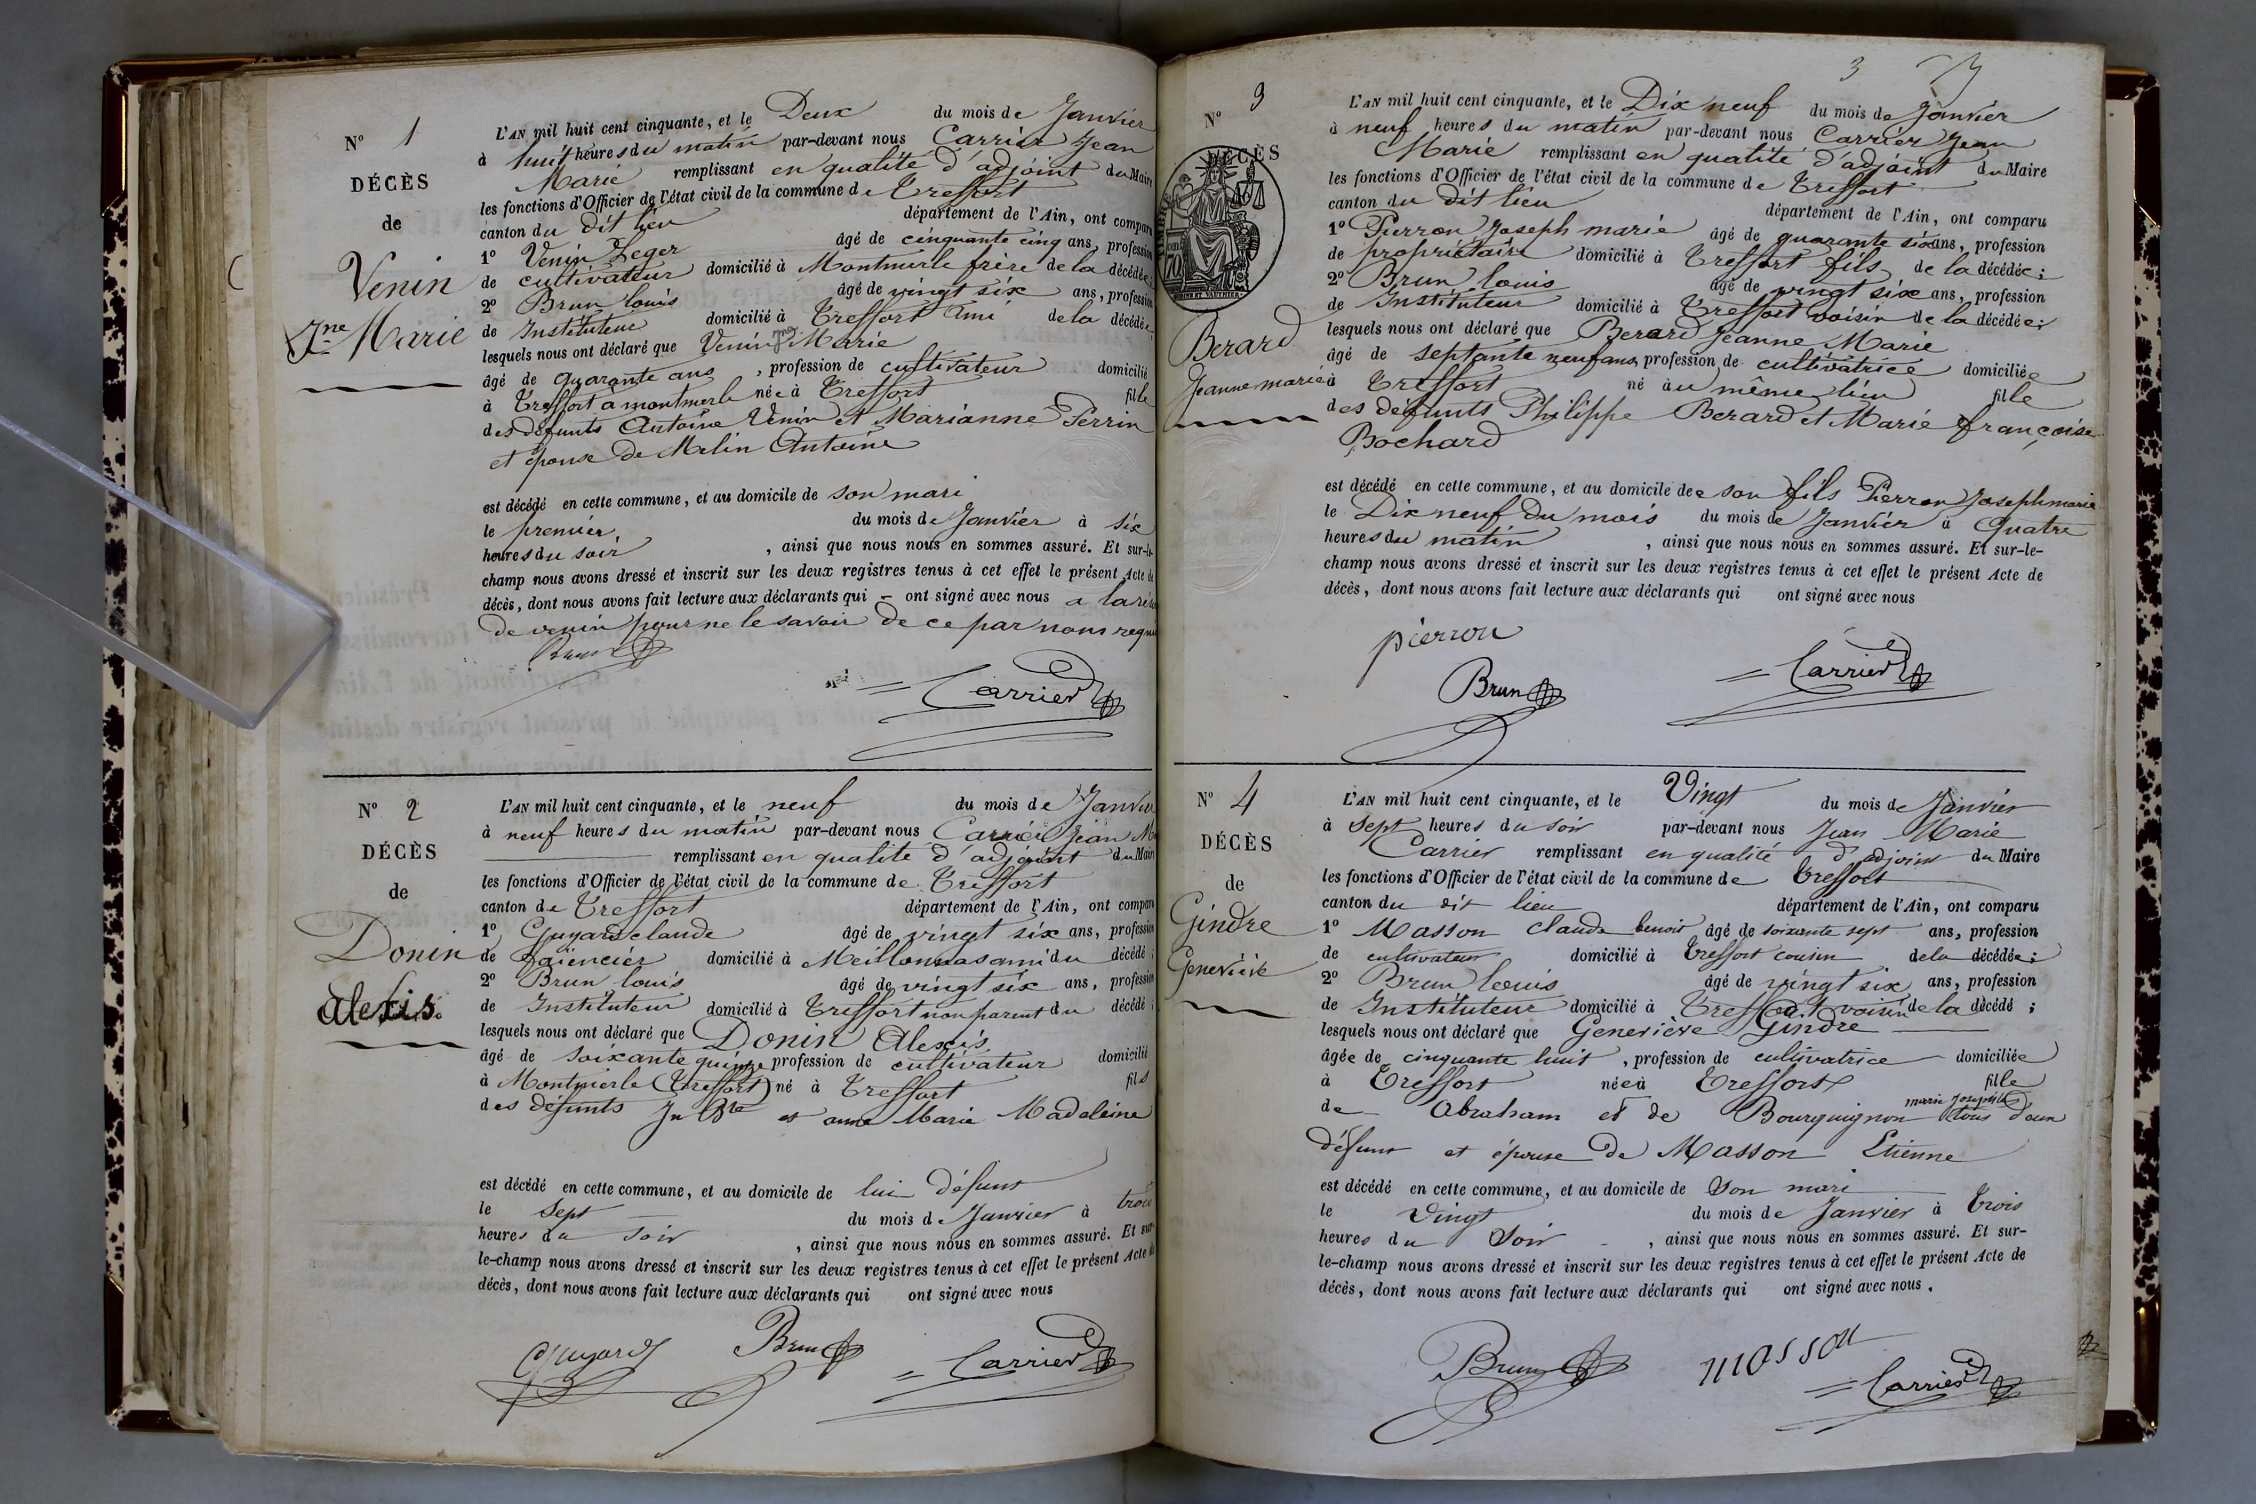 Nº 1
DÉCÈS
de
Venin
Jne Marie
L'AN mil huit cent cinquante, et le Deux du mois de Janvier
à huit heures du matin par-devant nous Carrier Jean
Marie remplissant en qualité d'adjoint du Maire
les fonctions d'Officier de l'état civil de la commune de Treffort
canton du dit lieu département de l'Ain, ont comparu
1º Venin Leger âgé de cinquante cinq ans, profession
de cultivateur domicilié à Montmerle frère de la décédée;
2º Brun louis âgé de vingt six ans, profession
de Instituteur domicilié à Treffort ami de la décédée
lesquels nous ont déclaré que Venin Jne Marie
âgé de quarante ans, profession de cultivateur domicilié
à Treffort a montmerle née à Treffort fille
des défunts Antoine Venin et Marianne Perrin
et épouse de Melin Antoine
est décédé en cette commune, et au domicile de son mari
le premier du mois de Janvier à six
heures du soir, ainsi que nous nous en sommes assuré. Et sur-le-
champ nous avons dressé et inscrit sur les deux registres tenus à cet effet le présent Acte de
décès, dont nous avons fait lecture aux déclarants qui - ont signé avec nous a la
de venin pour ne le savoir de ce par nous
Brun
Carrier
Nº 2
DÉCÈS
de
Donin
alexis
L'AN mil huit cent cinquante, et le neuf du mois de Janvier
à neuf heures du matin par-devant nous Carrier Jean
remplissant en qualité d'adjoint du Maire
les fonctions d'Officier de l'état civil de la commune de Treffort
canton de Treffort département de l'Ain, ont comparu
1º Guyard claude âgé de vingt six ans, profession
de faïencier domicilié à Meillonnas ami du décédé;
2º Brun louis âgé de vingt six ans, profession
de Instituteur domicilié à Treffort non parent du décédé;
lesquels nous ont déclaré que Donin Alexis
âgé de soixante quinze profession de cultivateur domicilié
à Montmerle (Treffort) né à Treffort fils
des défunts Jn Bte et anne Marie Madeleine
est décédé en cette commune, et au domicile de lui défunt
le sept du mois de Janvier à trois
heures du soir, ainsi que nous nous en sommes assuré. Et sur-
le-champ nous avons dressé et inscrit sur les deux registres tenus à cet effet le présent Acte de
décès, dont nous avons fait lecture aux déclarants qui ont signé avec nous
Guyard Brun Carrier
3
Nº 3
DÉCÈS
Berard
Jeanne marie
L'AN mil huit cent cinquante, et le Dix neuf du mois de Janvier
à neuf heures du matin par-devant nous Carrier Jean
Marie remplissant en qualité d'adjoint du Maire
les fonctions d'Officier de l'état civil de la commune de Treffort
canton du dit lieu département de l'Ain, ont comparu
1º Pierron Joseph marie âgé de quarante six ans, profession
de propriétaire domicilié à Treffort fils de la décédée;
2º Brun louis âgé de vingt six ans, profession
de Instituteur domicilié à Treffort voisin de la décédée;
lesquels nous ont déclaré que Berard Jeanne Marie
âgé de septante neuf ans, profession de cultivatrice domiciliée
à Treffort né au même lieu fille
des défunts Philippe Berard et Marie françoise
Bochard
est décédé en cette commune, et au domicile de son fils Pierron Joseph marie
le Dix neuf du mois du mois de Janvier à Quatre
heures du matin, ainsi que nous nous en sommes assuré. Et sur-le-
champ nous avons dressé et inscrit sur les deux registres tenus à cet effet le présent Acte de
décès, dont nous avons fait lecture aux déclarants qui ont signé avec nous
pierron
Brun Carrier
Nº 4
DÉCÈS
de
Gindre
Geneviève
L'AN mil huit cent cinquante, et le Vingt du mois de Janvier
à sept heures du soir par-devant nous Jean Marie
Carrier remplissant en qualité d'adjoint du Maire
les fonctions d'Officier de l'état civil de la commune de Treffort
canton du dit lieu département de l'Ain, ont comparu
1º Masson Claude benoit âgé de soixante sept ans, profession
de cultivateur domicilié à Treffort cousin de la décédée;
2º Brun louis âgé de vingt six ans, profession
de Instituteur domicilié à Treffort voisin de la décédé;
lesquels nous ont déclaré que Geneviève Gindre
âgée de cinquante huit, profession de cultivatrice domiciliée
à Treffort née à Treffort fille
de Abraham et de Bourguignon marie Josephte tous deux
défunt et épouse de Masson Etienne
est décédé en cette commune, et au domicile de son mari
le vingt du mois de Janvier à trois
heures du Soir, ainsi que nous nous en sommes assuré. Et sur-
le-champ nous avons dressé et inscrit sur les deux registres tenus à cet effet le présent Acte de
décès, dont nous avons fait lecture aux déclarants qui ont signé avec nous.
Brun masson Carrier